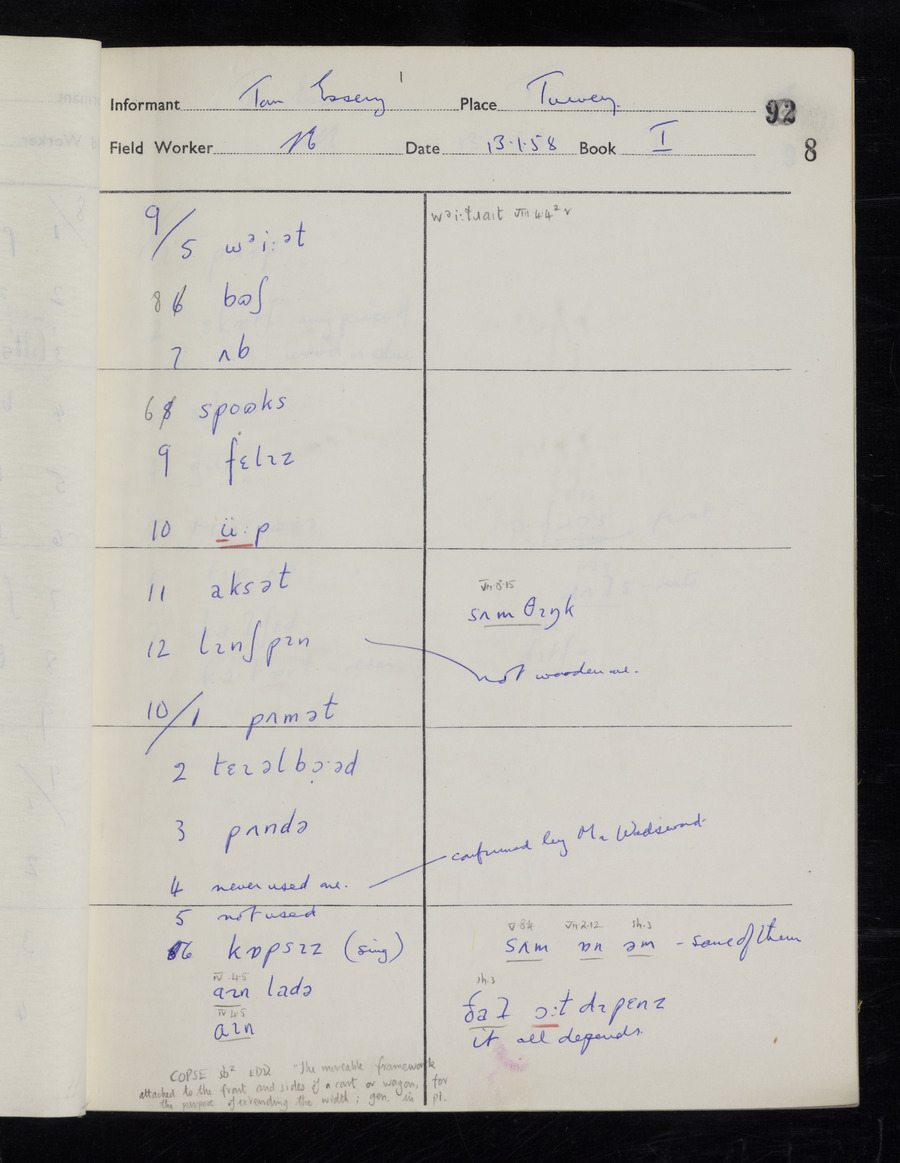 Informant Tom Essery Place Turvey. 92
Field Worker Date 13·1·58 Book I 8
9/5 wᵊi:ət wᵊi:tɹaɪt VII 4·4² v
8 6 bɷʃ
7 ʌb
6 8 spɷks
9 fɛlɪz
10 ü:p
11 aksət VII·8·15
sʌm θɪŋk
12 lɪnʃpɪn not wooden one.
10/1 pʌmət
2 tɛɪəlbɔ:əd
3 pʌndə
4 never used one. confirmed by Mr
5 not used
6 kɒpsɪz (sing) V 8 4 VII 2·12 sh·3
sʌm ɒn əm - some of them
IV 4·5
aɪn ladə sh·3
IV 4·5
aɪn ðaɪ ɔ:t dɪpɛnz
it all depends.
COPSE sb² EDD "The moveable framework
attached to the front and sides of a cart or wagon, for
the purpose of extending the width; gen. in pl.